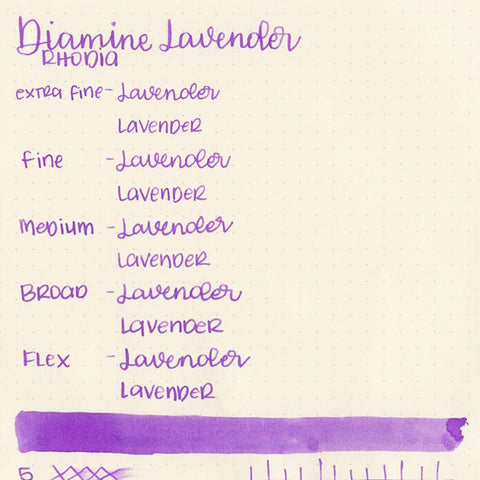 Diamine Lavender
RHODIA
extra fine - Lavender
LAVENDER
fine - Lavender
LAVENDER
Medium - Lavender
LAVENDER
BROAD - Lavender
LAVENDER
FLEX - Lavender
LAVENDER
5